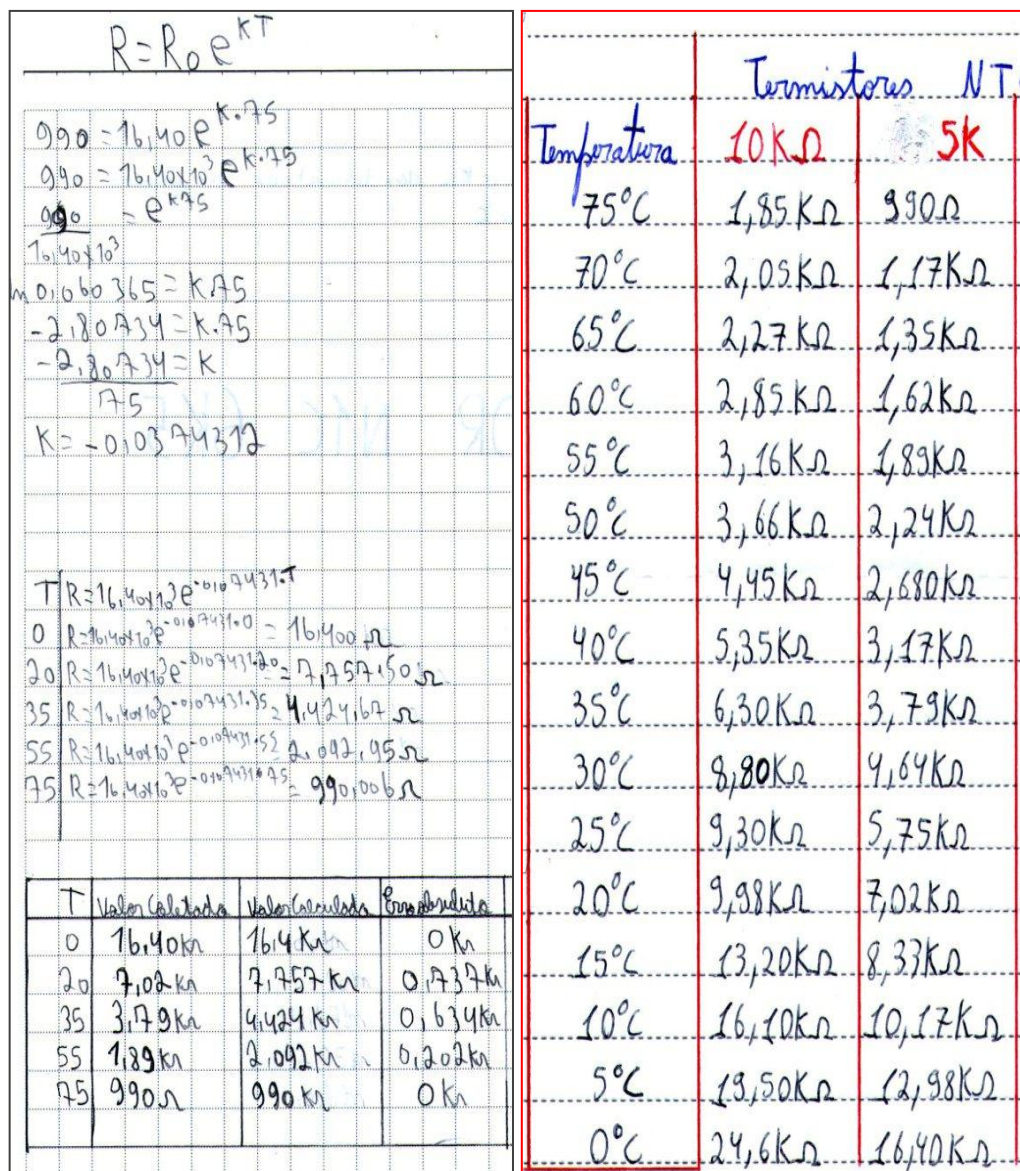 R=R₀e^KT
990=16,40e^K.75
990=16,40x10³e^K.75
990 = e^K75
16,40x10³
ln 0,060365=K.75
-2,80734=K.75
-2,80734=K
75
K=-0,0374312
T R=16,40x10³e^-0,037431.T
0 R=16,40x10³e^-0,037431.0 = 16,400 Ω
20 R=16,40x10³e^-0,037431.20 = 7,757.50 Ω
35 R=16,40x10³e^-0,037431.35 = 4,424,67 Ω
55 R=16,40x10³e^-0,037431.55 2,092,95 Ω
75 R=16,40x10³e^-0,037431.75 = 990,006 Ω
T Valor Coletado Valor Calculado Erro absoluto
0 16,40KΩ 16,4KΩ 0KΩ
20 7,02KΩ 7,757KΩ 0,737KΩ
35 3,79KΩ 4,424KΩ 0,634KΩ
55 1,89KΩ 2,092KΩ 0,202KΩ
75 990Ω 990KΩ 0KΩ
Termistores NT
Temperatura 10KΩ 5K
75°C 1,85KΩ 990Ω
70°C 2,05KΩ 1,17KΩ
65°C 2,27KΩ 1,35KΩ
60°C 2,85KΩ 1,62KΩ
55°C 3,16KΩ 1,89KΩ
50°C 3,66KΩ 2,24KΩ
45°C 4,45KΩ 2,680KΩ
40°C 5,35KΩ 3,17KΩ
35°C 6,30KΩ 3,79KΩ
30°C 8,80KΩ 4,64KΩ
25°C 9,30KΩ 5,75KΩ
20°C 9,98KΩ 7,02KΩ
15°C 13,20KΩ 8,33KΩ
10°C 16,10KΩ 10,17KΩ
5°C 19,50KΩ 12,98KΩ
0°C 24,6KΩ 16,40KΩ